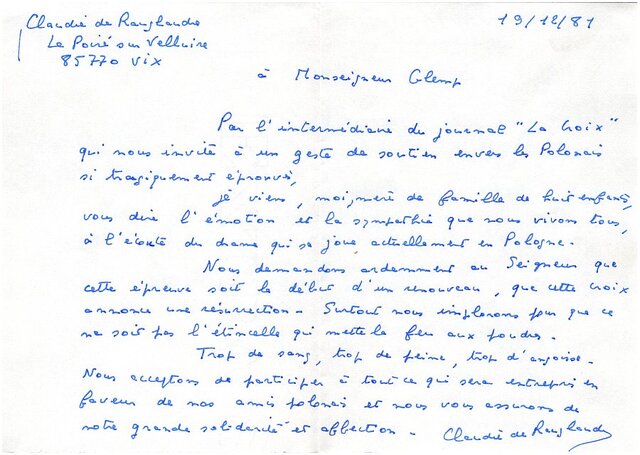 Claudie de Rauglaudre
Le Poiré sur Velluire
85770 VIX
19/12/81
à Monseigneur Glemp
Par l'intermédiaire du journal "La Croix"
qui nous invite à un geste de soutien envers les Polonais
si tragiquement éprouvés,
je viens, moi, mère de famille de huit enfants,
vous dire l'émotion et la sympathie que nous vivons tous,
à l'écoute du drame qui se joue actuellement en Pologne.
Nous demandons ardemment au Seigneur que
cette épreuve soit le début d'un renouveau, que cette croix
annonce une résurrection - Surtout nous implorons pour que ce
ne soit pas l'étincelle qui mette le feu aux poudres -
Trop de sang, trop de peine, trop d'angoisse -
Nous acceptons de participer à tout ce qui sera entrepris en
faveur de nos amis polonais et nous vous assurons de
notre grande solidarité et affection - Claudie de Rauglaudre